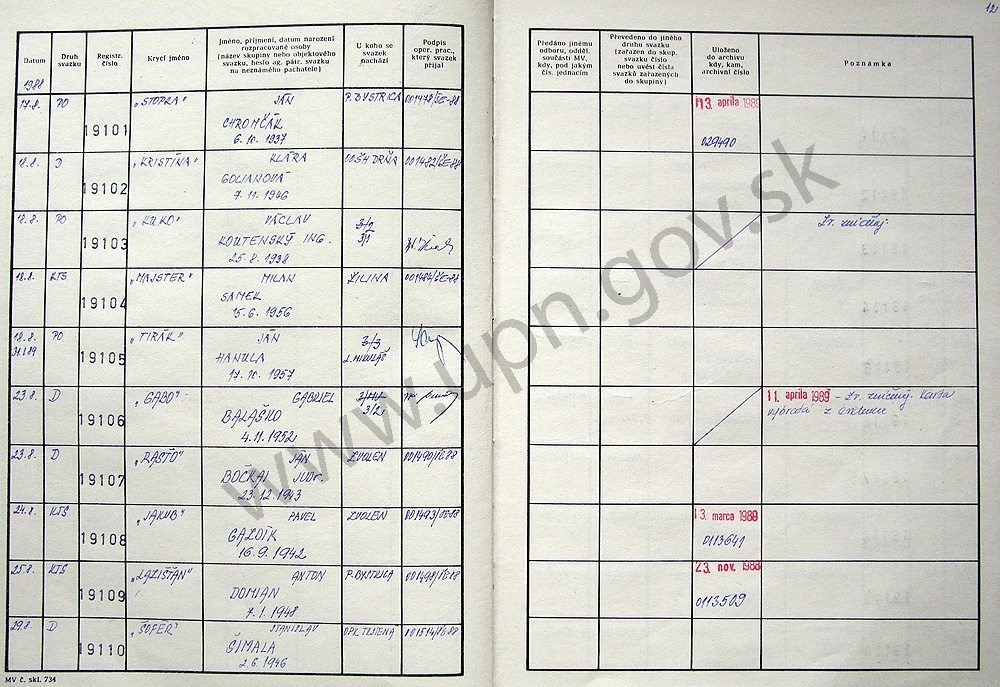 12
Datum
Druh svazku
Registr. číslo
Krycí jméno
Jméno, příjmení, datum narození rozpracované osoby (název skupiny nebo objektového svazku, heslo ag. pátr. svazku na neznámého pachatele)
U koho se svazek nachází
Podpis oper. prac., který svazek přijal
Předáno jinému odboru, odděl. součásti MV, kdy, pod jakým čís. jednacím
Převedeno do jiného druhu svazku (zařazen do skup. svazku číslo nebo uvést čísla svazků zařazených do skupiny)
Uloženo do archivu kdy, kam, archivní číslo
Poznámka
1988
17.8. PO 19101 „STOPKA" JÁN P. BYSTRICA 001478/ČE-88 13. apríla 1989
CHROMČÁK
6. 10. 1937
029490
18.8. D 19102 „KRISTÍNA" KLÁRA 001482/ČE-88
GOLIANOVÁ
7. 11. 1946
18.8. PO 19103 „KUKO" VÁCLAV 3/2 Zv. zničený
KOUTENSKÝ ING. 3/1
25. 8. 1938
18.8. KTS 19104 „MAJSTER" MILAN ŽILINA 001484/ČE-88
SAMEK
15. 6. 1956
18.8. PO 19105 „TIRÁK" JÁN 3/3
31.1.89 HANULA L. MIKULÁŠ
17. 10. 1957
23.8. D 19106 „GABO" GABRIEL 11. apríla 1989 - Zv. zničený. Karta
BALAŠKO 3/2 vybratá z
4. 11. 1952
23.8. D 19107 „RASŤO" JÁN ZVOLEN 001490/ČE88
BOČKAJ JUDr.
23. 12. 1943
24.8. KTS 19108 „JAKUB" PAVEL ZVOLEN 001493/ČE-88 13. marca
GAZDÍK
16. 9. 1942
0113641
25.8. KTS 19109 ANTON P. BYSTRICA 23. nov. 1988
DOMIAN
7. 1. 1948
0113509
29.8. D 19110 „ŠOFÉR" STANISLAV 001514/ČE88
ŠIMALA
2. 6. 1946
MV č. skl. 734
www.upn.gov.sk